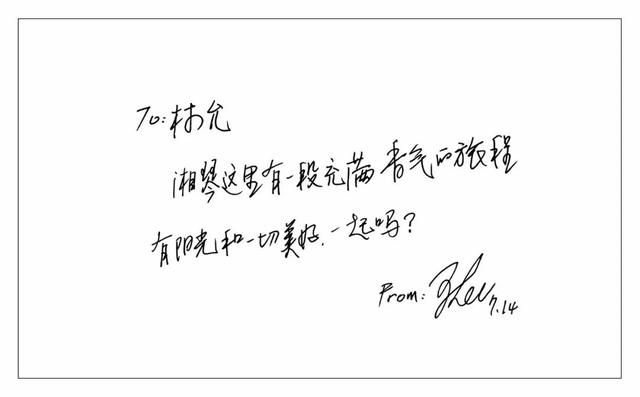 To: 林允
湘琴这里有一段充满香气的旅程
有阳光和一切美好,一起吗?
From:
7.14